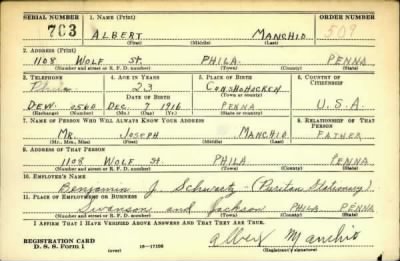 SERIAL NUMBER 1. NAME (Print) ORDER NUMBER
703 ALBERT MANCHIO 509
(First) (Middle) (Last)
2. ADDRESS (Print)
1108 WOLF St. PHILA. PENNA
(Number and street or R. F. D. number) (Town) (County) (State)
3. TELEPHONE 4. AGE IN YEARS 5. PLACE OF BIRTH 6. COUNTRY OF CITIZENSHIP
Phila 23 CONSHOHOCKEN
DATE OF BIRTH (Town or county)
DEW. 0560 DEC. 7 1916 PENNA U.S.A.
(Exchange) (Number) (Mo.) (Day) (Yr.) (State or country)
7. NAME OF PERSON WHO WILL ALWAYS KNOW YOUR ADDRESS 8. RELATIONSHIP OF THAT PERSON
MR. JOSEPH MANCHIO FATHER
(Mr., Mrs., Miss) (First) (Middle) (Last)
9. ADDRESS OF THAT PERSON
1108 WOLF St. PHILA PENNA
(Number and street or R. F. D. number) (Town) (County) (State)
10. EMPLOYER'S NAME
Benjamin J. Schwartz - (Puritan Stationery)
11. PLACE OF EMPLOYMENT OR BUSINESS
Swanson and Jackson PHILA PENNA
(Number and street or R. F. D. number) (Town) (County) (State)
I AFFIRM THAT I HAVE VERIFIED ABOVE ANSWERS AND THAT THEY ARE TRUE.
REGISTRATION CARD
D. S. S. Form 1 (over) 16-17105 Albert Manchio